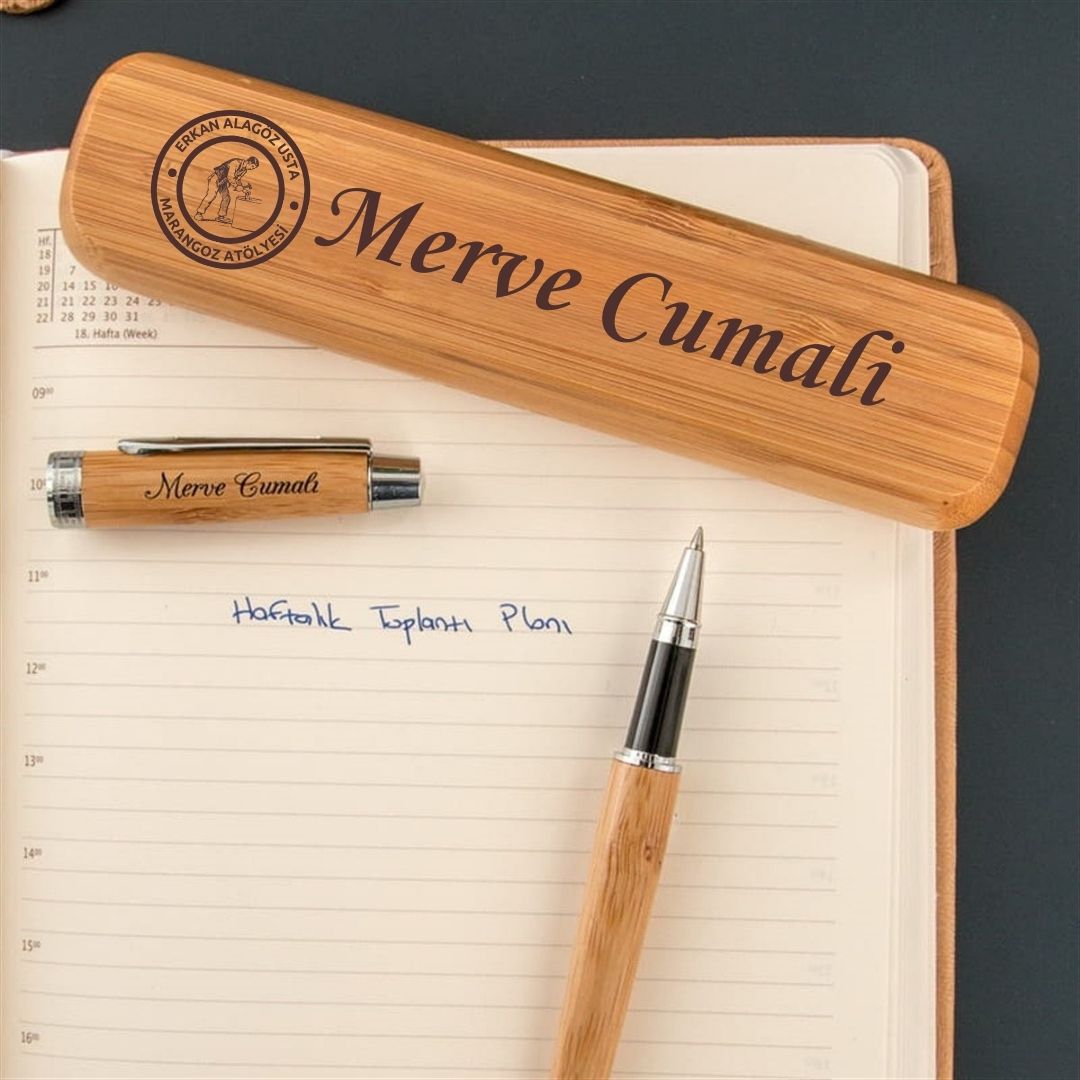 ERKAN ALAGÖZ USTA
MARANGOZ ATÖLYESİ
Merve Cumali
Hf.
18
19 7
20 14 15 16
21 21 22 23 24 23
22 28 29 30 31
18. Hafta (Week)
09⁰⁰
10
Merve Cumali
11⁰⁰
Haftalık Toplantı Planı
12⁰⁰
13⁰⁰
14⁰⁰
15⁰⁰
16⁰⁰